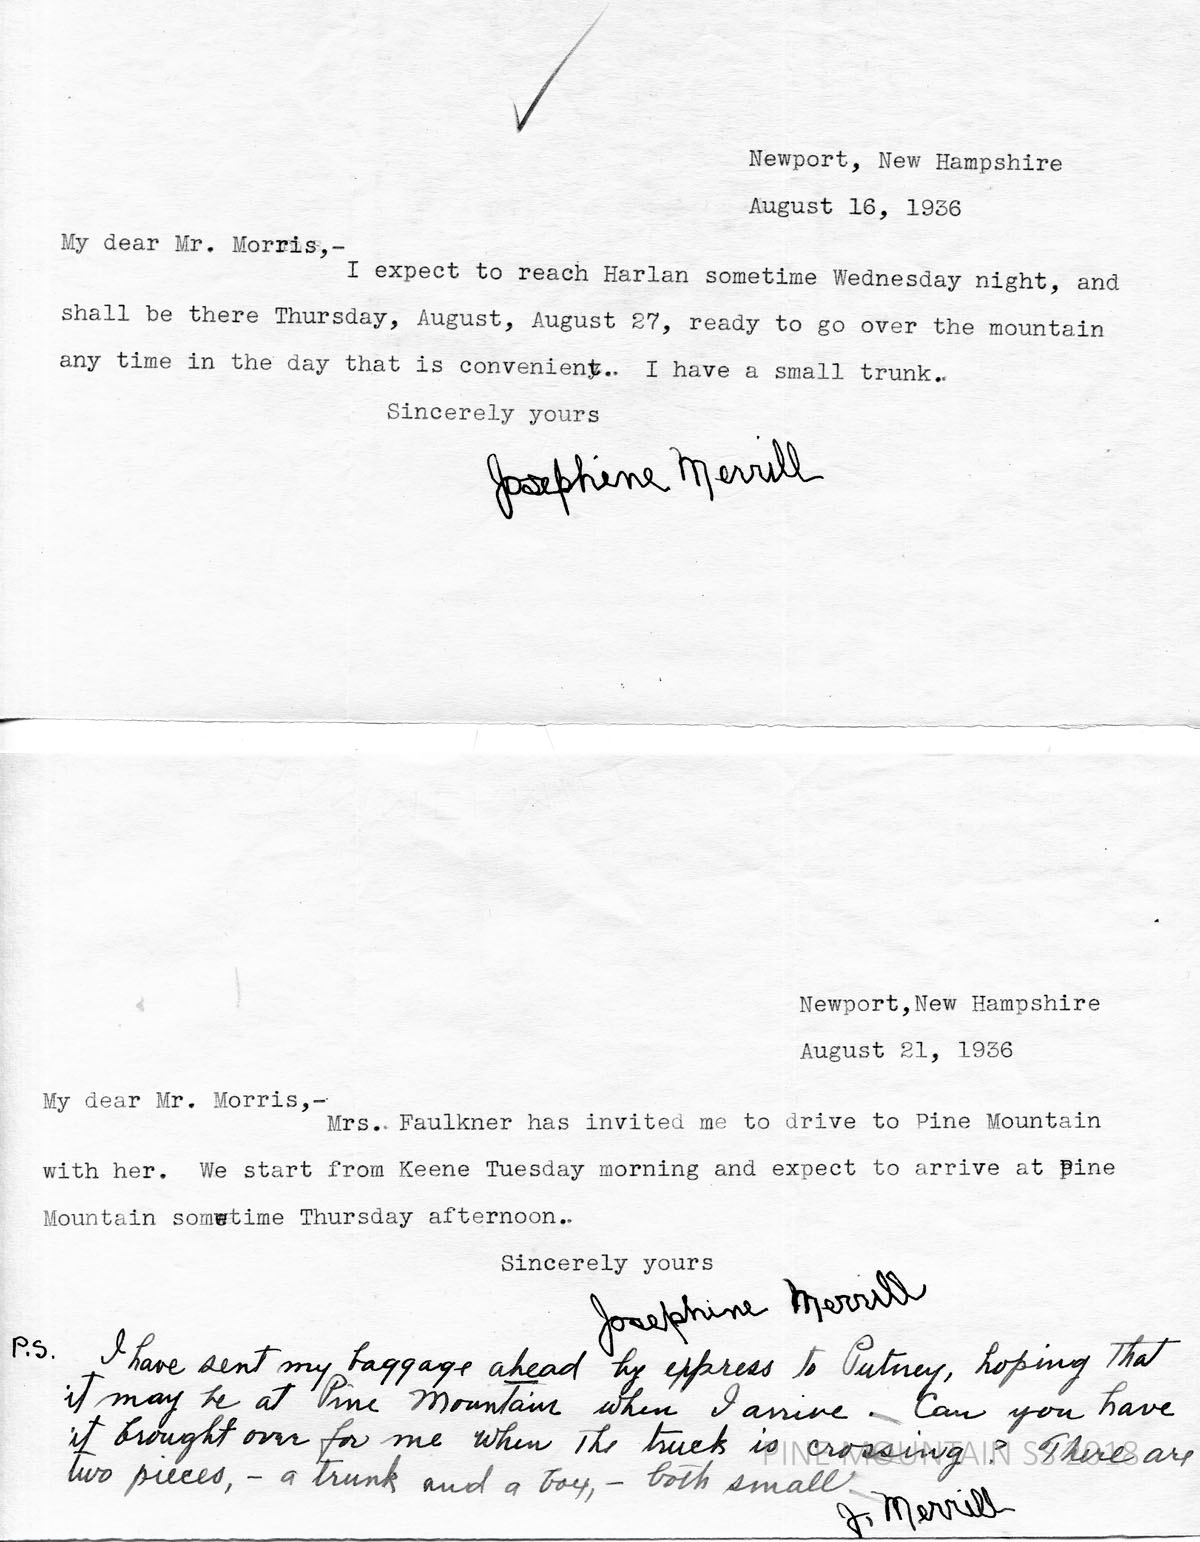 Newport, New Hampshire
August 16, 1936
My dear Mr. Morris,-
I expect to reach Harlan sometime Wednesday night, and
shall be there Thursday, August, August 27, ready to go over the mountain
any time in the day that is convenient.. I have a small trunk..
Sincerely yours
Josephine Merrill
Newport,New Hampshire
August 21, 1936
My dear Mr. Morris,-
Mrs.. Faulkner has invited me to drive to Pine Mountain
with her. We start from Keene Tuesday morning and expect to arrive at Pine
Mountain sometime Thursday afternoon..
Sincerely yours
Josephine Merrill
P.S. I have sent my baggage ahead by express to Putney, hoping that
it may be at Pine Mountain when I arrive. Can you have
it brought over for me when the truck is crossing? There are
two pieces, - a trunk and a box, - both small.
J. Merrill
PINE MOUNTAIN SS 2018